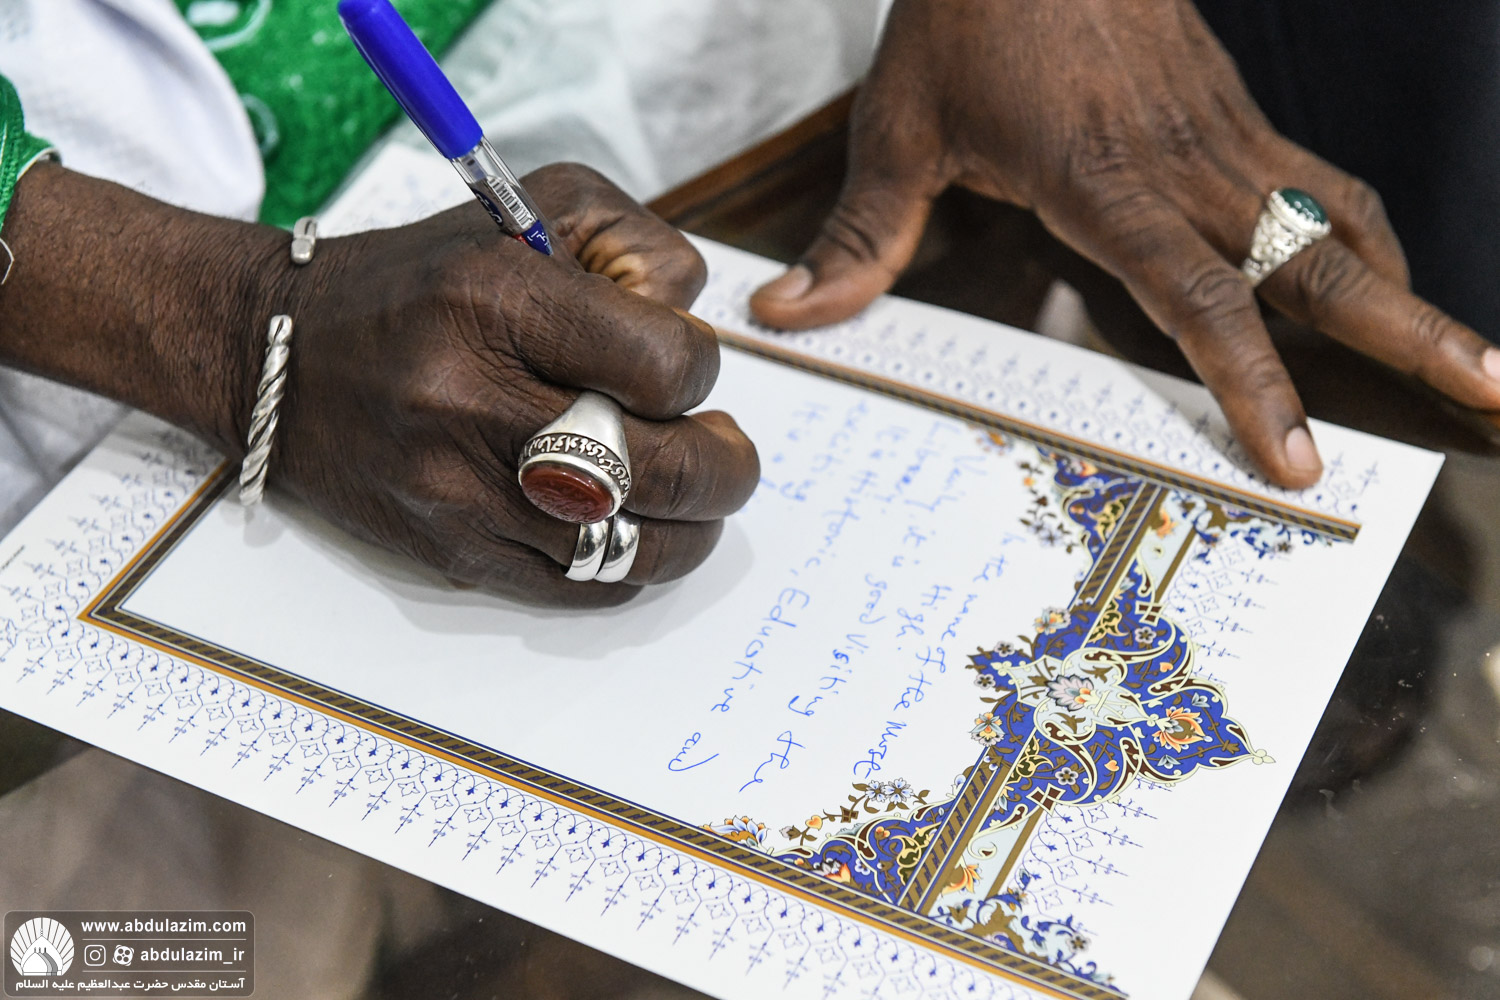 In the name of the Most
High.
it is good Visiting the
Library.
It is Historic, Educative and
exciting
It is a
www.abdulazim.com
abdulazim_ir
آستان مقدس حضرت عبدالعظیم علیه السلام